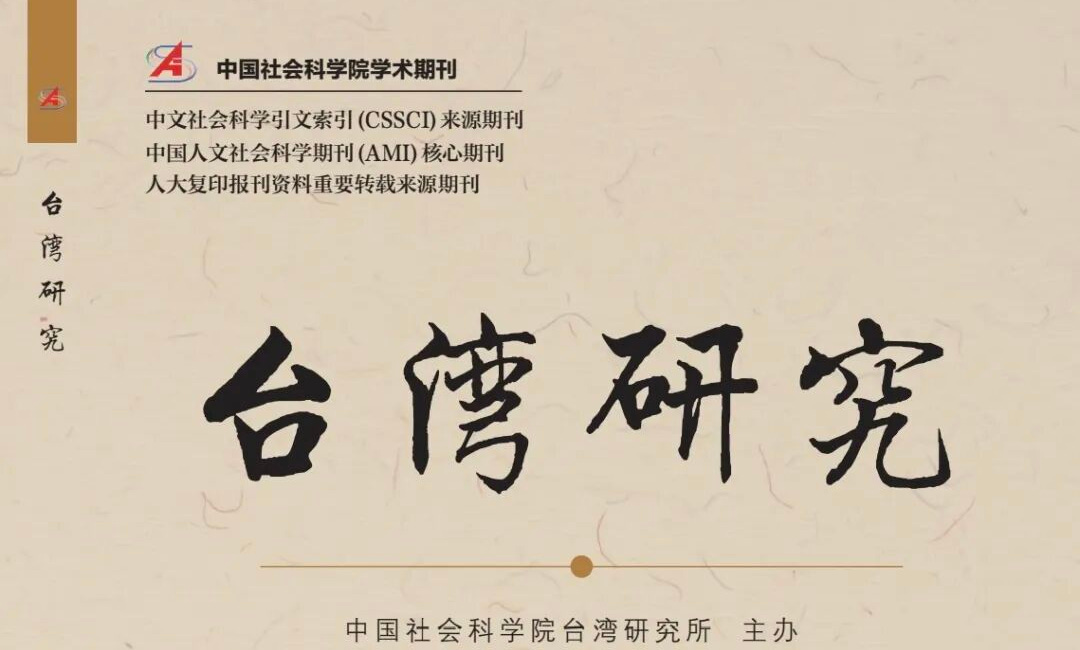 中国社会科学院学术期刊
中文社会科学引文索引(CSSCI)来源期刊
中国人文社会科学期刊(AMI)核心期刊
人大复印报刊资料重要转载来源期刊
台湾研究
台湾研究
中国社会科学院台湾研究所 主办